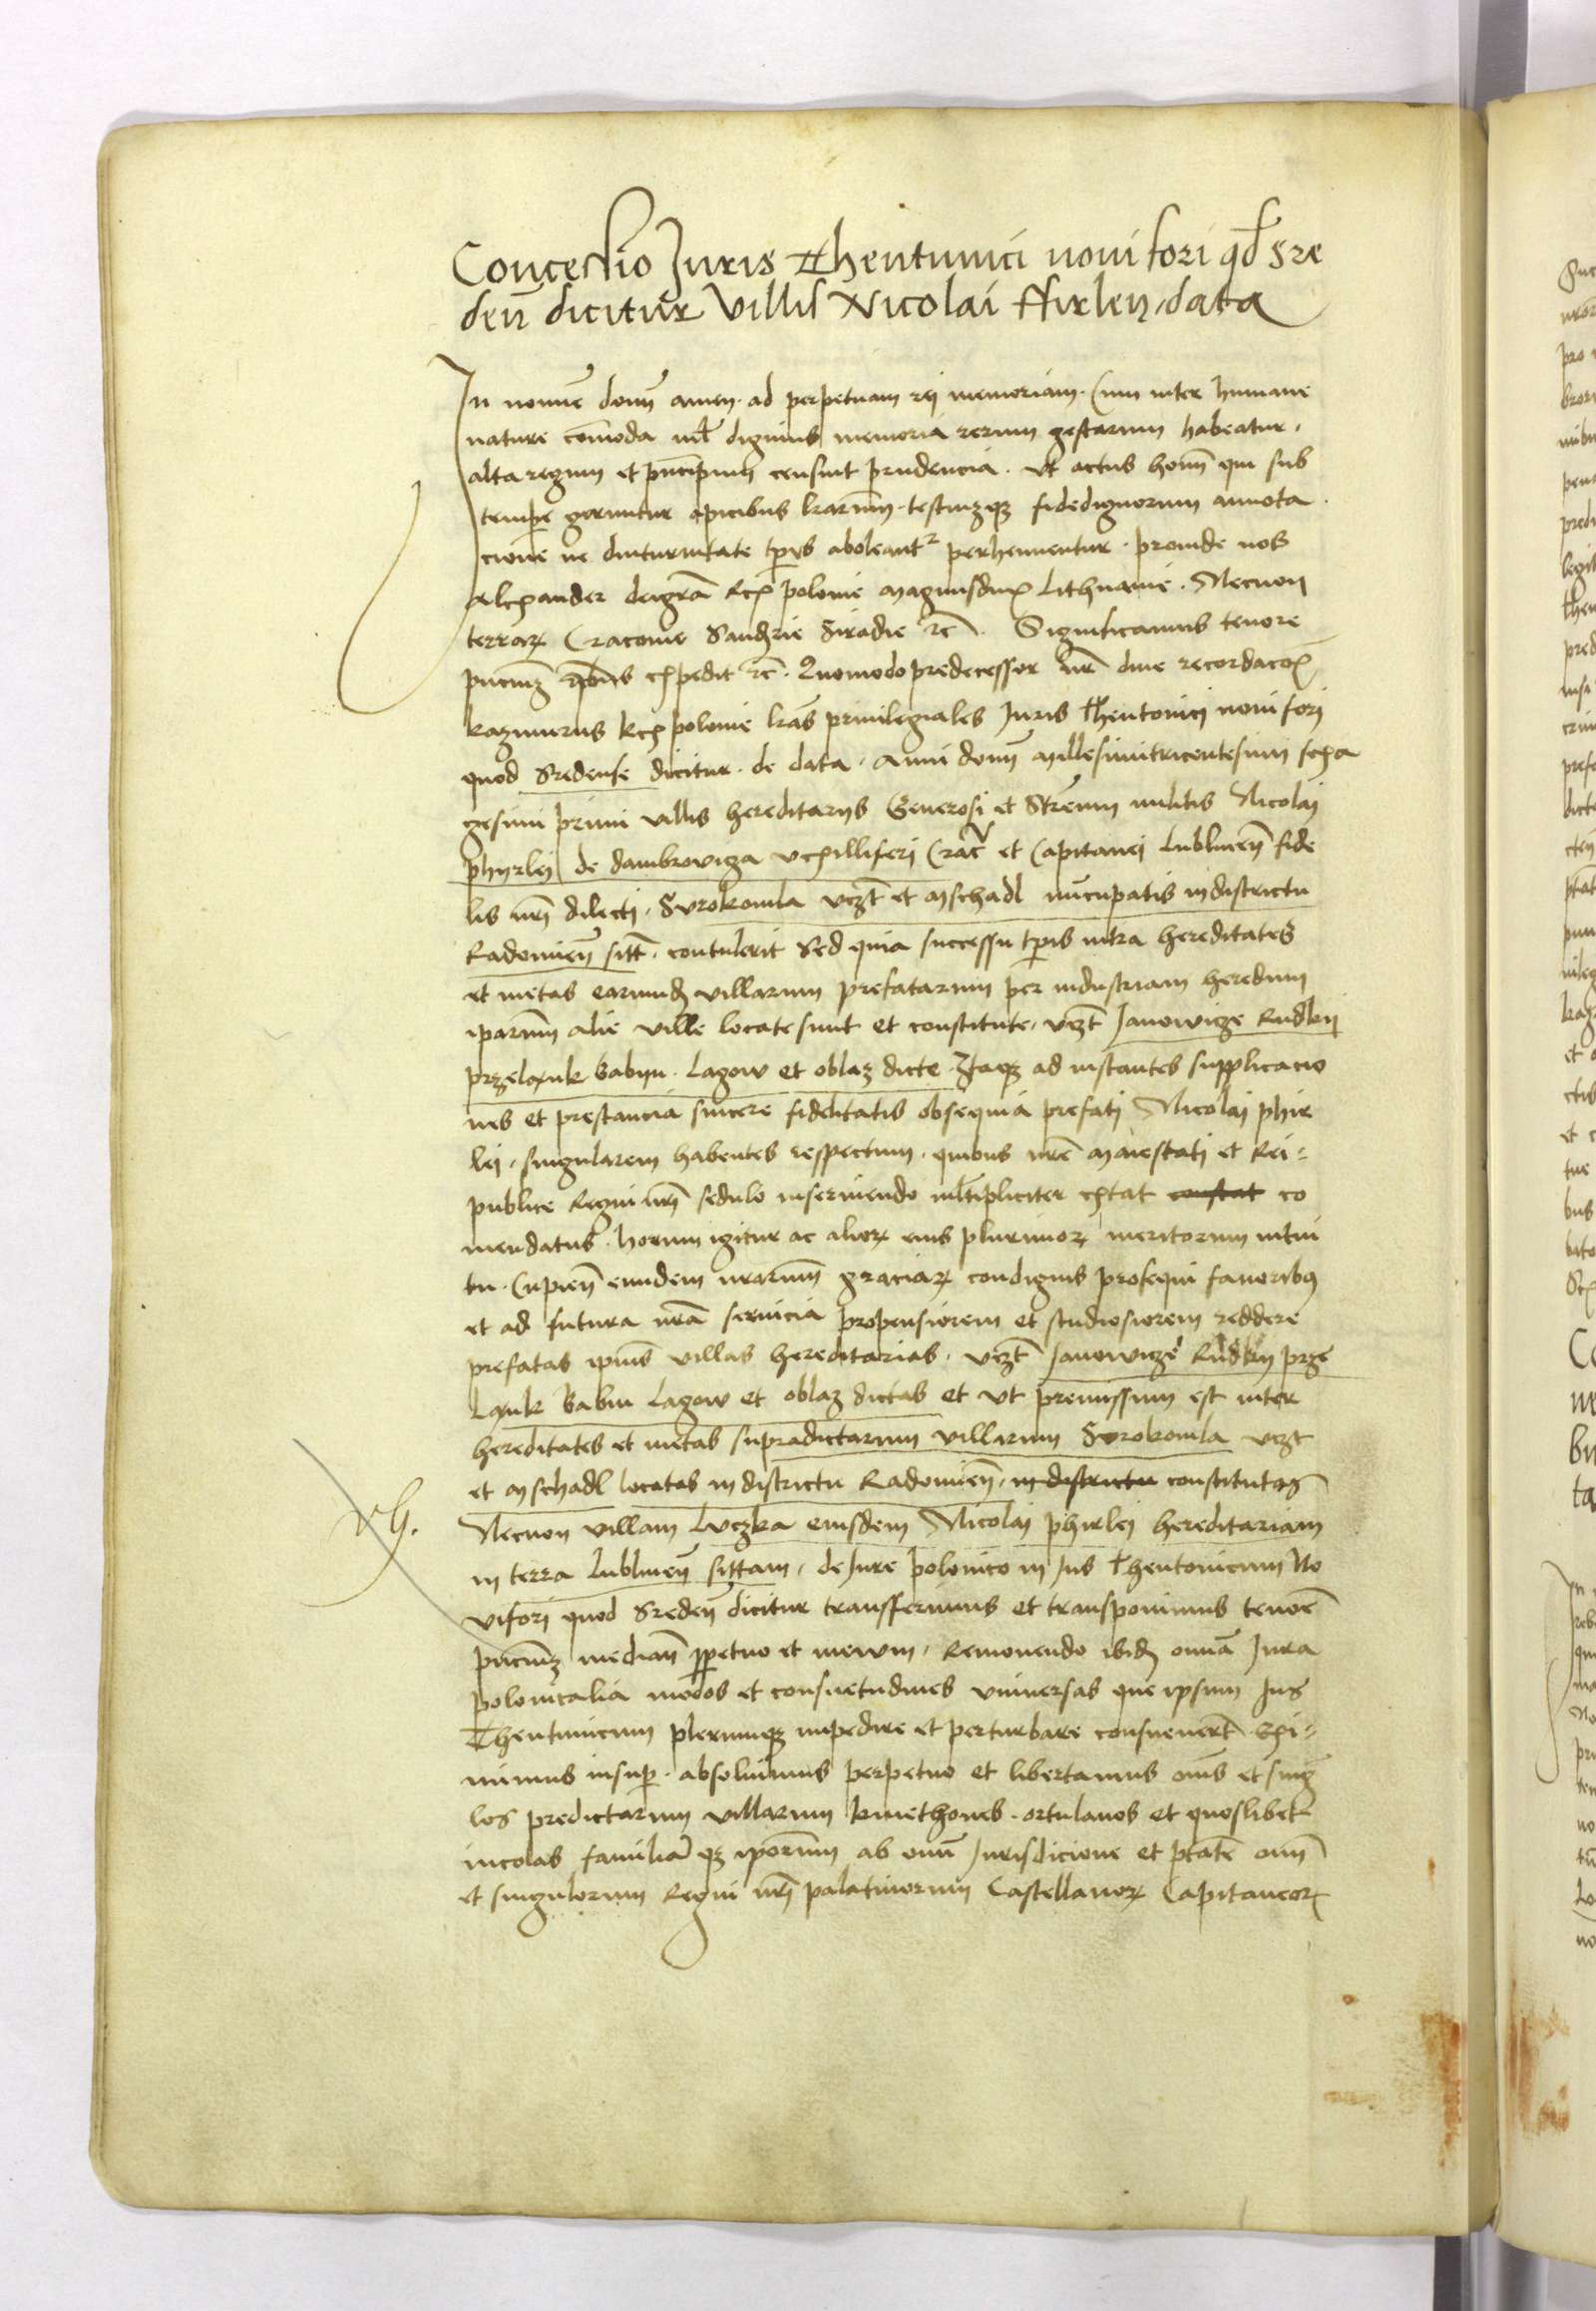 Concessio Juris Thentunici noui fori qd Sre
deñ dicitur Villis Nicolai ffirley data
In nomīe domī amen. ad perpetuam rei memoriam. Cum inter humane
nature cōmoda nil dignius memoria rerum gestarum habeatur.
alta regum et pncipum censuit prudencia. Ut actus homī qui sub
tempe geruntur apicibus lrarum. testiuzqz fidedignorum annota
cione ne diuturnitate tpis aboleantr perhennentur. proinde nos
Alexander dei grā Rex polonie magnusdux Lithuanie. Necnon
terrarz Cracouie Sandzie Siradie zc. Significamus tenore
pnciuz qbus expedit zc. Quomodo predecessor nr diue recordacōx
kazimirus Rex polonie lras priuilegiales Juris Thentonici noui fori
quod Sredense dicitur. de data. Anni domī Millesimitricentesimi sexa
gesimi primi villis hereditarijs Generosi et Strenui militis Nicolai
phyrlej de dambrovicza vexilliferi Crac et Capitanei lublineñ fide
lis nri dilecti. Syrokomla vczt et Mschadl nūcupatis in districtu
Radomieñ sitt. contulerit Sed quia successu tpis intra hereditates
et metas earundz villarum prefatarum per industriam heredum
iparum alie ville locate sunt et constitute. vczt Janowicze Rudkij
przelank babyn. Lagow et oblaz dicte. Itaqz ad instantes supplicacio
nes et prestancia sincere fidelitatis obsequia prefati Nicolai phir
lei. singularem habentes respectum. quibus nre Maiestati et Rei=
publice Regni nri sedulo inseruiendo mltipliciter extat constat co
mendatus. horum igitur ac aliorz eius plurimorz meritorum intui
tu. Cupieñ eundem nrarum graciarz condignis prosequi fauoribus
et ad futura nra seruicia propensiorem et studiosiorem reddere
prefatas ipius villas hereditarias. vczt Janowicze Rudkij prze
lank babin Lagow et oblaz dictas et ut premissum est inter
hereditates et metas supradictarum villarum Syrokomla vczt
et Mschadl locatas in districtu Radomieñ. in districtu constitutas
Necnon villam Luczka eiusdem Nicolai phirlej hereditariam
in terra lublineñ sittam. de Jure polonico in Jus Thentonicum No
vifori quod Sredeñ dicitur transferimus et transponimus tenore
pnciuz mediañ ppetuo et in ewum. Remouendo ibidz omia Jura
polonicalia modos et consuetudines vniuersas que ipsum Jus
Thentunicum plerumqz impedire et perturbare consueuert. Exi=
mimus insup. absoluimus perpetuo et libertamus omēs et sing
los predictarum villarum kmethones. ortulanos et quoslibet
incolas familiā qz iporum ab omi Jurisdicione et ptate omī
et singulorum Regni nri palatinorum Castellanorz Capitaneorz